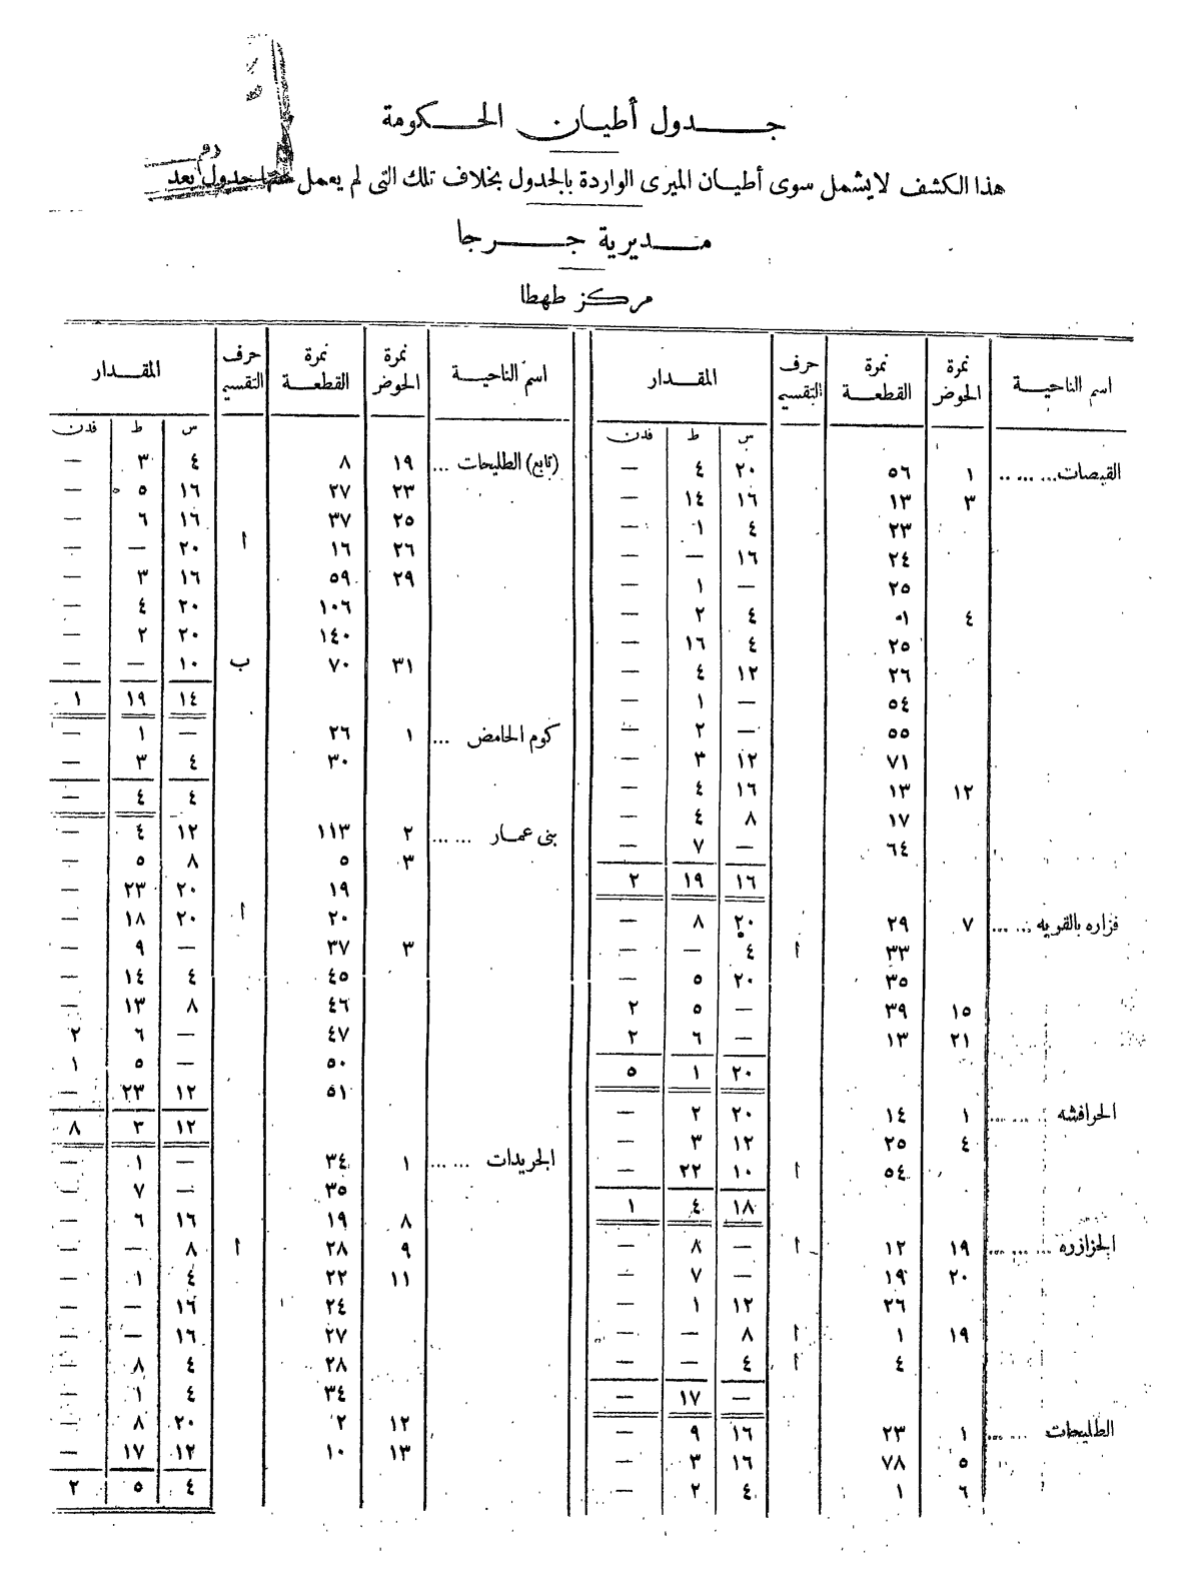 جدول أطيان الحكومة
هذا الكشف لا يشمل سوى أطيان الميرى الواردة بالجدول بخلاف تلك التى لم يعمل عنها جدول بعد
مديرية جرجا
مركز طهطا
اسم الناحية | نمرة الحوض | نمرة القطعة | حرف التقسيم | المقدار
س | ط | فدن
القبيصات... ... .. | ١ | ٥٦ | | ٢٠ | ٤ | —
٣ | ١٣ | | ١٦ | ١٤ | —
٢٣ | | ٤ | ١ | —
٢٤ | | ١٦ | — | —
٢٥ | | — | ١ | —
٤ | | ٤ | ٢ | —
٢٥ | | ٤ | ١٦ | —
٢٦ | | ١٢ | ٤ | —
٥٤ | | — | ١ | —
٥٥ | | — | ٢ | —
٧١ | | ١٢ | ٣ | —
١٢ | ١٣ | | ١٦ | ٤ | —
١٧ | | ٨ | ٤ | —
٦٤ | | — | ٧ | —
١٦ | ١٩ | ٢
فزاره بالقويه ... ... | ٧ | ٢٩ | | ٢٠ | ٨ | —
٣٣ | ا | ٤ | — | —
٣٥ | | ٢٠ | ٥ | —
١٥ | ٣٩ | | — | ٥ | ٢
٢١ | ١٣ | | — | ٦ | ٢
٢٠ | ١ | ٥
الحرافشه ... ... | ١ | ١٤ | | ٢٠ | ٢ | —
٤ | ٢٥ | | ١٢ | ٣ | —
٥٤ | ا | ١٠ | ٢٢ | —
١٨ | ٤ | ١
الجزازره ... ... ... | ١٩ | ١٢ | ا | — | ٨ | —
٢٠ | ١٩ | | — | ٧ | —
٢٦ | | ١٢ | ١ | —
١٩ | ١ | ا | ٨ | — | —
٤ | ا | ٤ | — | —
— | ١٧ | —
الطليحات ... ... | ١ | ٢٣ | | ١٦ | ٩ | —
٥ | ٧٨ | | ١٦ | ٣ | —
٦ | ١ | | ٤ | ٢ | —
اسم الناحية | نمرة الحوض | نمرة القطعة | حرف التقسيم | المقدار
س | ط | فدن
(تابع) الطليحات ... | ١٩ | ٨ | | ٤ | ٣ | —
٢٣ | ٢٧ | | ١٦ | ٥ | —
٢٥ | ٣٧ | | ١٦ | ٦ | —
٢٦ | ١٦ | ا | ٢٠ | — | —
٢٩ | ٥٩ | | ١٦ | ٣ | —
١٠٦ | | ٢٠ | ٤ | —
١٤٠ | | ٢٠ | ٢ | —
٣١ | ٧٠ | ب | ١٠ | — | —
١٤ | ١٩ | ١
كوم الحامض ... | ١ | ٢٦ | | — | ١ | —
٣٠ | | ٤ | ٣ | —
٤ | ٤ | —
بنى عمار ... ... | ٢ | ١١٣ | | ١٢ | ٤ | —
٣ | ٥ | | ٨ | ٥ | —
١٩ | | ٢٠ | ٢٣ | —
٢٠ | ا | ٢٠ | ١٨ | —
٣ | ٣٧ | | — | ٩ | —
٤٥ | | ٤ | ١٤ | —
٤٦ | | ٨ | ١٣ | —
٤٧ | | — | ٦ | ٢
٥٠ | | — | ٥ | ١
٥١ | | ١٢ | ٢٣ | —
١٢ | ٣ | ٨
الجريدات ... ... | ١ | ٣٤ | | — | ١ | —
٣٥ | | — | ٧ | —
٨ | ١٩ | | ١٦ | ٦ | —
٩ | ٢٨ | ا | ٨ | — | —
١١ | ٢٢ | | ٤ | ١ | —
٢٤ | | ١٦ | — | —
٢٧ | | ١٦ | — | —
٢٨ | | ٤ | ٨ | —
٣٤ | | ٤ | ١ | —
١٢ | ٢ | | ٢٠ | ٨ | —
١٣ | ١٠ | | ١٢ | ١٧ | —
٤ | ٥ | ٢